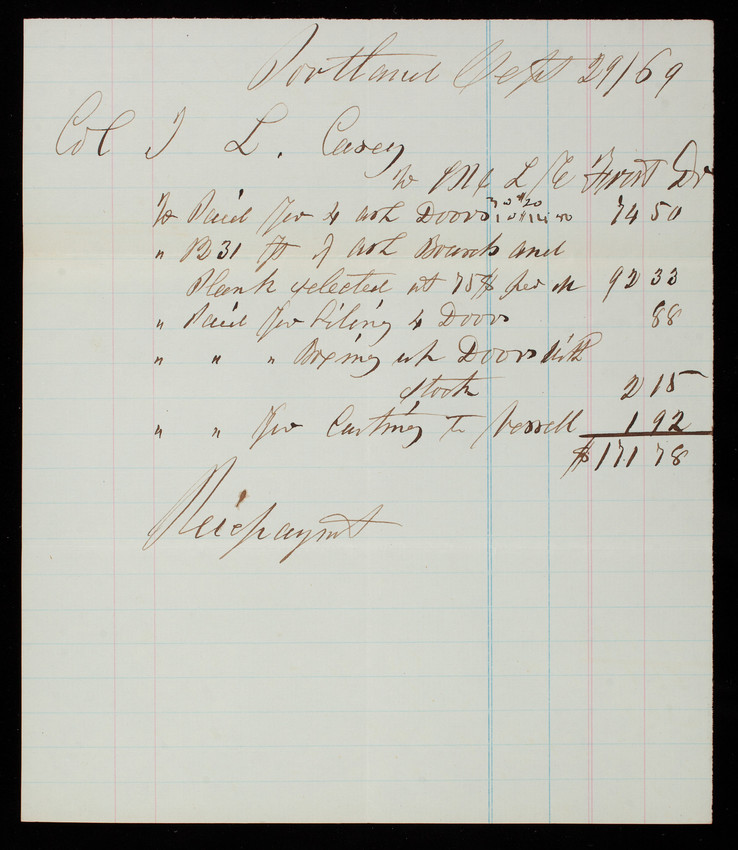 Portland Sept 29/69
Col T L. Casey
To M & L E Frost Dr
To Paid for 4 ash Doors 3 @ $20 1 @ $14.50 74 50
" 1231 ft of ash Boards and
Plank selected at 75$ per m 92 33
" Paid for Oiling 4 Doors 88
" " " Boxing up Doors with
stock 2 15
" " for Carting to Vessell 1 92
$171 78
Rec paymt